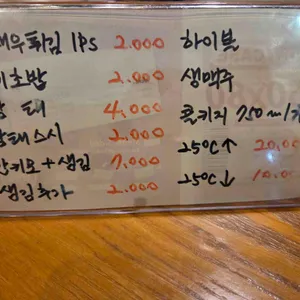 새우튀김 1PS 2.000
초밥 2.000
4.000
2.000
+ 생김 7.000
생김추가 2.000
하이볼
생맥주
콜키지 750ml
25℃↑ 20.00
25℃↓ 10.00